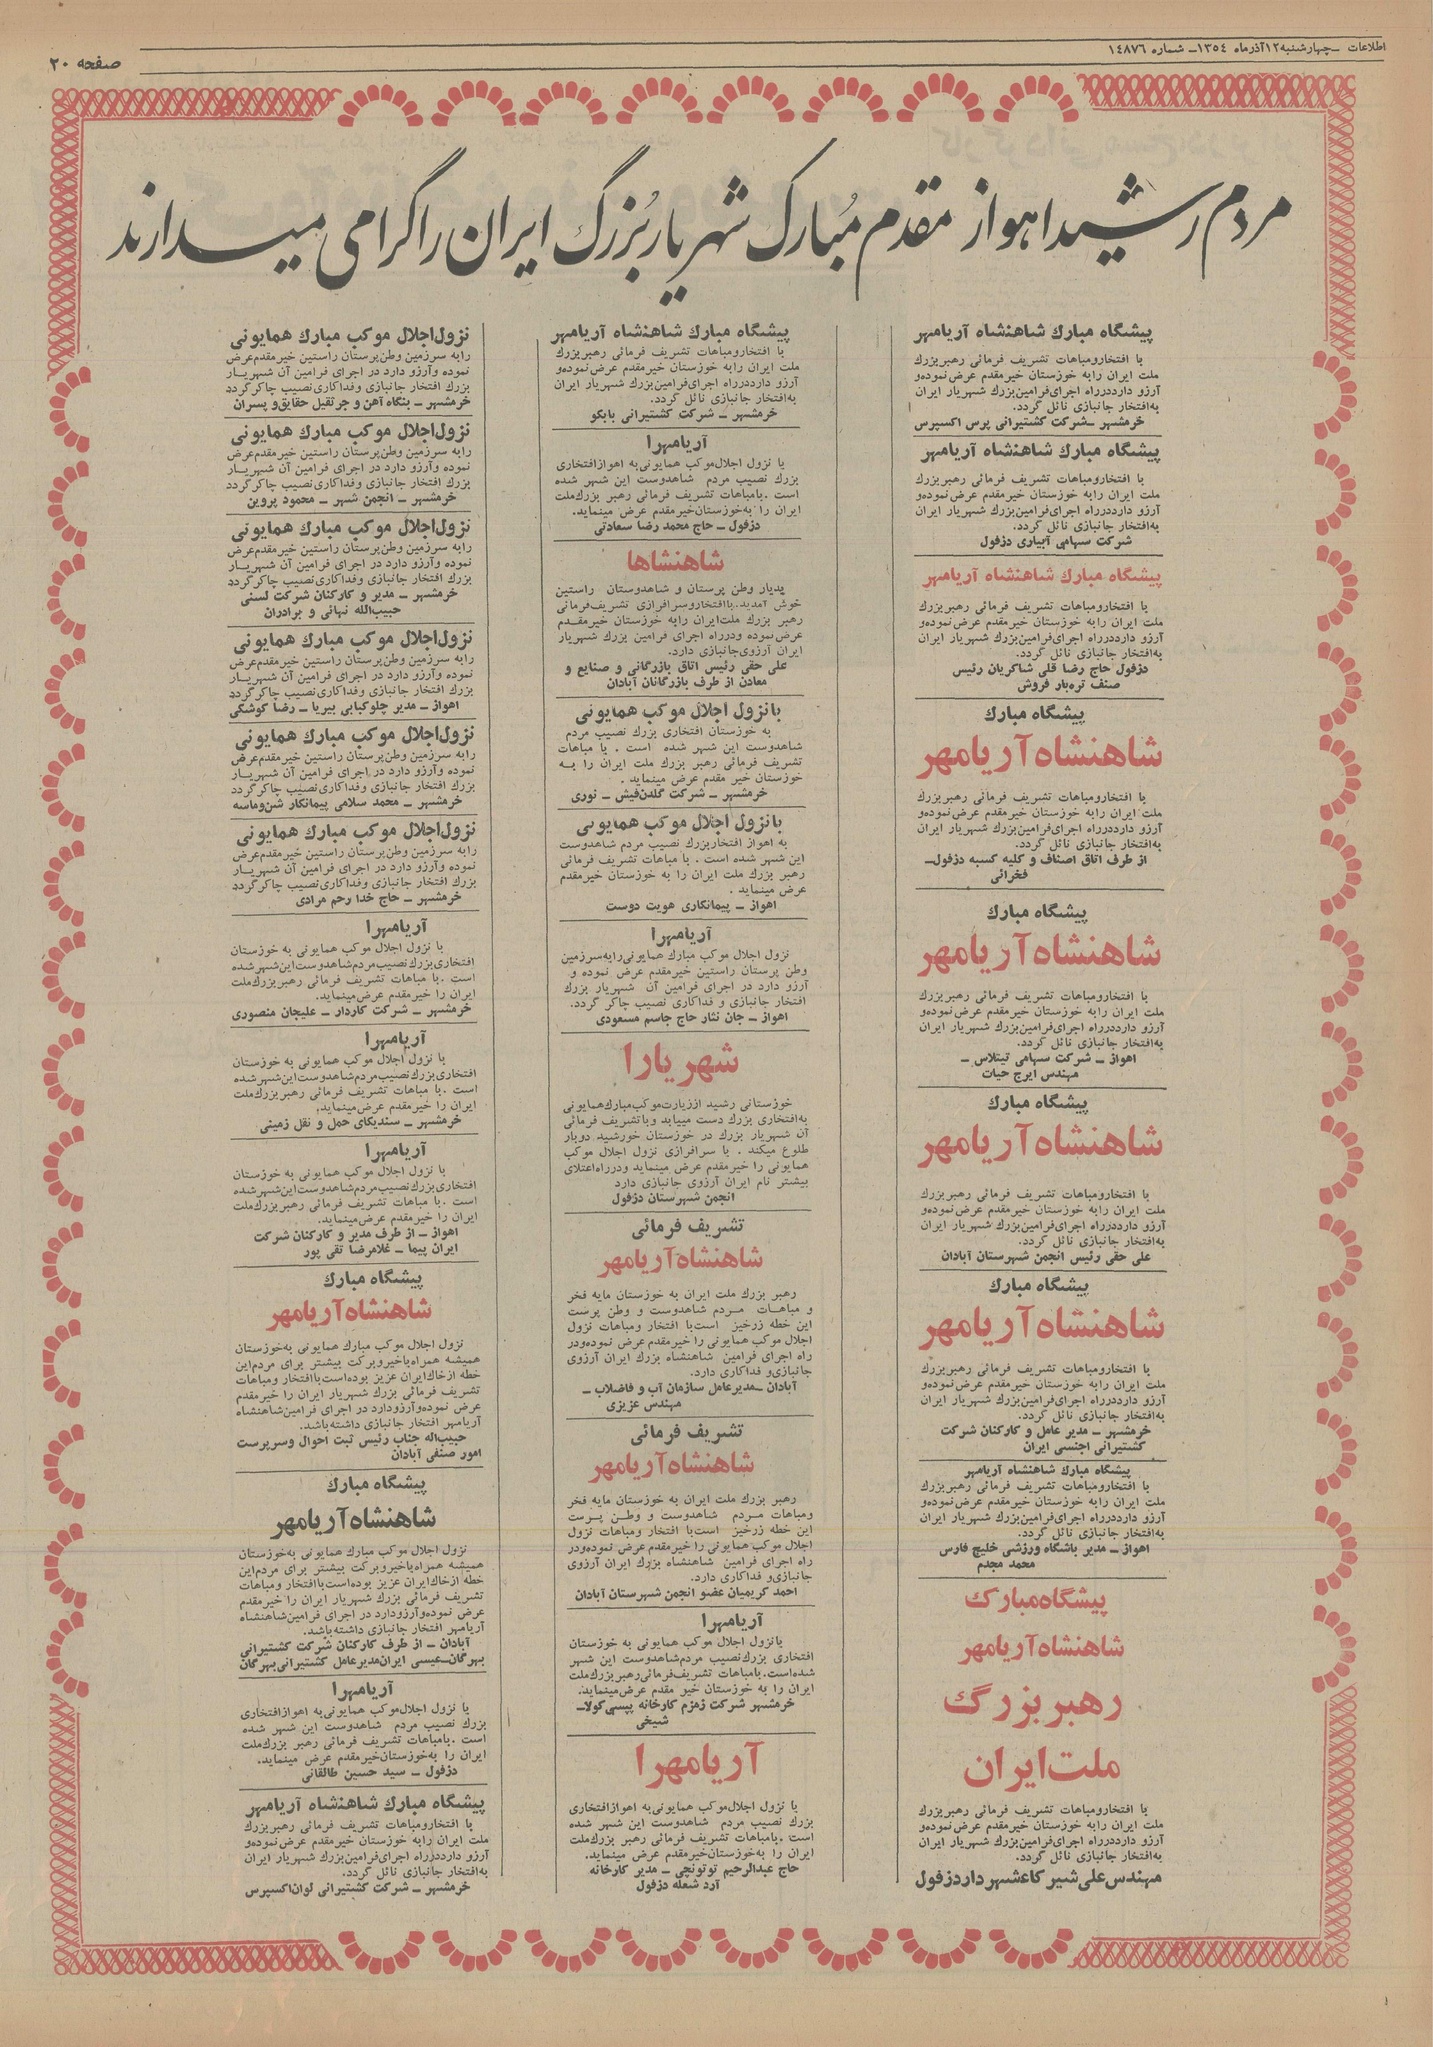 اطلاعات - چهارشنبه ۱۲ آذر ماه ۱۳۵٤ - شماره ۱٤۸۷٦
صفحه ۲۰
مردم رشید اهواز مقدم مُبارک شهریار بُزرگ ایران را گرامی میدارند
پیشگاه مبارك شاهنشاه آریامهر
با افتخار و مباهات تشریف فرمائی رهبر بزرك
ملت ایران را به خوزستان خیر مقدم عرض نموده و
آرزو دارد در راه اجرای فرامین بزرك شهریار ایران
به افتخار جانبازی نائل گردد.
خرمشهر - شرکت کشتیرانی پرس اکسپرس
پیشگاه مبارك شاهنشاه آریامهر
با افتخار و مباهات تشریف فرمائی رهبر بزرك
ملت ایران را به خوزستان خیر مقدم عرض نموده و
آرزو دارد در راه اجرای فرامین بزرك شهریار ایران
به افتخار جانبازی نائل گردد.
شرکت سهامی آبیاری دزفول
پیشگاه مبارك شاهنشاه آریامهر
با افتخار و مباهات تشریف فرمائی رهبر بزرك
ملت ایران را به خوزستان خیر مقدم عرض نموده و
آرزو دارد در راه اجرای فرامین بزرك شهریار ایران
به افتخار جانبازی نائل گردد.
دزفول حاج رضا قلی شاکریان رئیس
صنف تره‌بار فروش
پیشگاه مبارك
شاهنشاه آریامهر
با افتخار و مباهات تشریف فرمائی رهبر بزرك
ملت ایران را به خوزستان خیر مقدم عرض نموده و
آرزو دارد در راه اجرای فرامین بزرك شهریار ایران
به افتخار جانبازی نائل گردد.
از طرف اتاق اصناف و کلیه کسبه دزفول -
فخرائی
پیشگاه مبارك
شاهنشاه آریامهر
با افتخار و مباهات تشریف فرمائی رهبر بزرك
ملت ایران را به خوزستان خیر مقدم عرض نموده و
آرزو دارد در راه اجرای فرامین بزرك شهریار ایران
به افتخار جانبازی نائل گردد.
اهواز - شرکت سهامی تیتلاس -
مهندس ایرج حیات
پیشگاه مبارك
شاهنشاه آریامهر
با افتخار و مباهات تشریف فرمائی رهبر بزرك
ملت ایران را به خوزستان خیر مقدم عرض نموده و
آرزو دارد در راه اجرای فرامین بزرك شهریار ایران
به افتخار جانبازی نائل گردد.
علی حقی رئیس انجمن شهرستان آبادان
پیشگاه مبارك
شاهنشاه آریامهر
با افتخار و مباهات تشریف فرمائی رهبر بزرك
ملت ایران را به خوزستان خیر مقدم عرض نموده و
آرزو دارد در راه اجرای فرامین بزرك شهریار ایران
به افتخار جانبازی نائل گردد.
خرمشهر - مدیر عامل و کارکنان شرکت
کشتیرانی اجنسی ایران
پیشگاه مبارك شاهنشاه آریامهر
با افتخار و مباهات تشریف فرمائی رهبر بزرك
ملت ایران را به خوزستان خیر مقدم عرض نموده و
آرزو دارد در راه اجرای فرامین بزرك شهریار ایران
به افتخار جانبازی نائل گردد.
اهواز - مدیر باشگاه ورزشی خلیج فارس
محمد مجدم
پیشگاه مبارك
شاهنشاه آریامهر
رهبر بزرگ
ملت ایران
با افتخار و مباهات تشریف فرمائی رهبر بزرك
ملت ایران را به خوزستان خیر مقدم عرض نموده و
آرزو دارد در راه اجرای فرامین بزرك شهریار ایران
به افتخار جانبازی نائل گردد.
مهندس علی شیر کاء شهردار دزفول
پیشگاه مبارك شاهنشاه آریامهر
با افتخار و مباهات تشریف فرمائی رهبر بزرك
ملت ایران را به خوزستان خیر مقدم عرض نموده و
آرزو دارد در راه اجرای فرامین بزرك شهریار ایران
به افتخار جانبازی نائل گردد.
خرمشهر - شرکت کشتیرانی بابکو
آریامهرا
با نزول اجلال موکب همایونی به اهواز افتخاری
بزرك نصیب مردم شاهدوست این شهر شده
است. بامباهات تشریف فرمائی رهبر بزرك ملت
ایران را به خوزستان خیر مقدم عرض مینماید.
دزفول - حاج محمد رضا سعادتی
شاهنشاها
بدیار وطن پرستان و شاهدوستان راستین
خوش آمدید. با افتخار و سرافرازی تشریف فرمائی
رهبر بزرك ملت ایران را به خوزستان خیر مقدم
عرض نموده و در راه اجرای فرامین بزرك شهریار
ایران آرزوی جانبازی دارد.
علی حقی رئیس اتاق بازرگانی و صنایع و
معادن از طرف بازرگانان آبادان
با نزول اجلال موکب همایونی
به خوزستان افتخاری بزرك نصیب مردم
شاهدوست این شهر شده است. با مباهات
تشریف فرمائی رهبر بزرك ملت ایران را به
خوزستان خیر مقدم عرض مینماید.
خرمشهر - شرکت گلدن‌فیش - نوری
با نزول اجلال موکب همایونی
به اهواز افتخار بزرك نصیب مردم شاهدوست
این شهر شده است. با مباهات تشریف فرمائی
رهبر بزرك ملت ایران را به خوزستان خیر مقدم
عرض مینماید.
اهواز - پیمانکاری هویت دوست
آریامهرا
نزول اجلال موکب مبارك همایونی را به سرزمین
وطن پرستان راستین خیر مقدم عرض نموده و
آرزو دارد در اجرای فرامین آن شهریار بزرك
افتخار جانبازی و فداکاری نصیب چاکر گردد.
اهواز - جان نثار حاج جاسم مسعودی
شهریارا
خوزستانی رشید از زیارت موکب مبارك همایونی
به افتخاری بزرك دست مییابد و با تشریف فرمائی
آن شهریار بزرك در خوزستان خورشید دوبار
طلوع میکند. با سرافرازی نزول اجلال موکب
همایونی را خیر مقدم عرض مینماید و در راه اعتلای
بیشتر نام ایران آرزوی جانبازی دارد
انجمن شهرستان دزفول
تشریف فرمائی
شاهنشاه آریامهر
رهبر بزرك ملت ایران به خوزستان مایه فخر
و مباهات مردم شاهدوست و وطن پرست
این خطه زرخیز است با افتخار و مباهات نزول
اجلال موکب همایونی را خیر مقدم عرض نموده و در
راه اجرای فرامین شاهنشاه بزرك ایران آرزوی
جانبازی و فداکاری دارد.
آبادان - مدیرعامل سازمان آب و فاضلاب -
مهندس عزیزی
تشریف فرمائی
شاهنشاه آریامهر
رهبر بزرك ملت ایران به خوزستان مایه فخر
و مباهات مردم شاهدوست و وطن پرست
این خطه زرخیز است با افتخار و مباهات نزول
اجلال موکب همایونی را خیر مقدم عرض نموده و در
راه اجرای فرامین شاهنشاه بزرك ایران آرزوی
جانبازی و فداکاری دارد.
احمد کریمیان عضو انجمن شهرستان آبادان
آریامهرا
با نزول اجلال موکب همایونی به خوزستان
افتخاری بزرك نصیب مردم شاهدوست این شهر
شده است. بامباهات تشریف فرمائی رهبر بزرك ملت
ایران را به خوزستان خیر مقدم عرض مینماید.
خرمشهر شرکت زمزم کارخانه پپسی کولا -
شیخی
آریامهرا
با نزول اجلال موکب همایونی به اهواز افتخاری
بزرك نصیب مردم شاهدوست این شهر شده
است. بامباهات تشریف فرمائی رهبر بزرك ملت
ایران را به خوزستان خیر مقدم عرض مینماید.
حاج عبدالرحیم توتونچی - مدیر کارخانه
آرد شعله دزفول
نزول اجلال موکب مبارك همایونی
را به سرزمین وطن پرستان راستین خیر مقدم عرض
نموده و آرزو دارد در اجرای فرامین آن شهریار
بزرك افتخار جانبازی و فداکاری نصیب چاکر گردد
خرمشهر - بنگاه آهن و جرثقیل حقایق و پسران
نزول اجلال موکب مبارك همایونی
را به سرزمین وطن پرستان راستین خیر مقدم عرض
نموده و آرزو دارد در اجرای فرامین آن شهریار
بزرك افتخار جانبازی و فداکاری نصیب چاکر گردد
خرمشهر - انجمن شهر - محمود پروین
نزول اجلال موکب مبارك همایونی
را به سرزمین وطن پرستان راستین خیر مقدم عرض
نموده و آرزو دارد در اجرای فرامین آن شهریار
بزرك افتخار جانبازی و فداکاری نصیب چاکر گردد
خرمشهر - مدیر و کارکنان شرکت لسنی
حبیب‌الله نهائی و برادران
نزول اجلال موکب مبارك همایونی
را به سرزمین وطن پرستان راستین خیر مقدم عرض
نموده و آرزو دارد در اجرای فرامین آن شهریار
بزرك افتخار جانبازی و فداکاری نصیب چاکر گردد
اهواز - مدیر چلوکبابی بیریا - رضا کوشکی
نزول اجلال موکب مبارك همایونی
را به سرزمین وطن پرستان راستین خیر مقدم عرض
نموده و آرزو دارد در اجرای فرامین آن شهریار
بزرك افتخار جانبازی و فداکاری نصیب چاکر گردد
خرمشهر - محمد سلامی پیمانکار شن و ماسه
نزول اجلال موکب مبارك همایونی
را به سرزمین وطن پرستان راستین خیر مقدم عرض
نموده و آرزو دارد در اجرای فرامین آن شهریار
بزرك افتخار جانبازی و فداکاری نصیب چاکر گردد
خرمشهر - حاج خدا رحم مرادی
آریامهرا
با نزول اجلال موکب همایونی به خوزستان
افتخاری بزرك نصیب مردم شاهدوست این شهر شده
است. با مباهات تشریف فرمائی رهبر بزرك ملت
ایران را خیر مقدم عرض مینماید.
خرمشهر - شرکت کاردار - علیجان منصوری
آریامهرا
با نزول اجلال موکب همایونی به خوزستان
افتخاری بزرك نصیب مردم شاهدوست این شهر شده
است. با مباهات تشریف فرمائی رهبر بزرك ملت
ایران را خیر مقدم عرض مینماید.
خرمشهر - سندیکای حمل و نقل زمینی
آریامهرا
با نزول اجلال موکب همایونی به خوزستان
افتخاری بزرك نصیب مردم شاهدوست این شهر شده
است. با مباهات تشریف فرمائی رهبر بزرك ملت
ایران را خیر مقدم عرض مینماید.
اهواز - از طرف مدیر و کارکنان شرکت
ایران پیما - غلامرضا تقی پور
پیشگاه مبارك
شاهنشاه آریامهر
نزول اجلال موکب مبارك همایونی به خوزستان
همیشه همراه با خیر و برکت بیشتر برای مردم این
خطه از خاك ایران عزیز بوده است با افتخار و مباهات
تشریف فرمائی بزرك شهریار ایران را خیر مقدم
عرض نموده و آرزو دارد در اجرای فرامین شاهنشاه
آریامهر افتخار جانبازی داشته باشد.
حبیب‌اله جناب رئیس ثبت احوال و سرپرست
امور صنفی آبادان
پیشگاه مبارك
شاهنشاه آریامهر
نزول اجلال موکب مبارك همایونی به خوزستان
همیشه همراه با خیر و برکت بیشتر برای مردم این
خطه از خاك ایران عزیز بوده است با افتخار و مباهات
تشریف فرمائی بزرك شهریار ایران را خیر مقدم
عرض نموده و آرزو دارد در اجرای فرامین شاهنشاه
آریامهر افتخار جانبازی داشته باشد.
آبادان - از طرف کارکنان شرکت کشتیرانی
بهرگان - عیسی ایران مدیر عامل کشتیرانی بهرگان
آریامهرا
با نزول اجلال موکب همایونی به اهواز افتخاری
بزرك نصیب مردم شاهدوست این شهر شده
است. بامباهات تشریف فرمائی رهبر بزرك ملت
ایران را به خوزستان خیر مقدم عرض مینماید.
دزفول - سید حسین طالقانی
پیشگاه مبارك شاهنشاه آریامهر
با افتخار و مباهات تشریف فرمائی رهبر بزرك
ملت ایران را به خوزستان خیر مقدم عرض نموده و
آرزو دارد در راه اجرای فرامین بزرك شهریار ایران
به افتخار جانبازی نائل گردد.
خرمشهر - شرکت کشتیرانی لوان اکسپرس